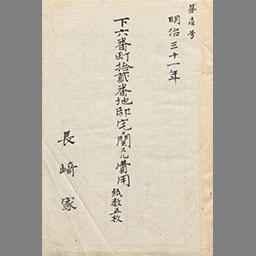 第壱号
明治三十一年
下六番町拾弐番地邸宅ニ関スル費用
紙数五枚
長崎家